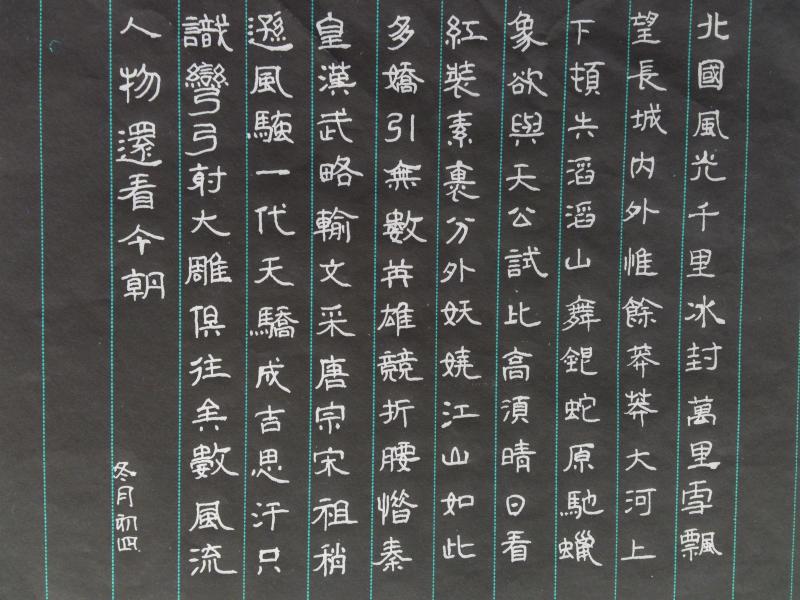 北國風光千里冰封萬里雪飄
望長城內外惟餘莽莽大河上
下頓失滔滔山舞銀蛇原馳蠟
象欲與天公試比高須晴日看
紅裝素裹分外妖嬈江山如此
多嬌引無數英雄競折腰惜秦
皇漢武略輸文采唐宗宋祖稍
遜風騷一代天驕成吉思汗只
識彎弓射大雕俱往矣數風流
人物還看今朝
冬月初四